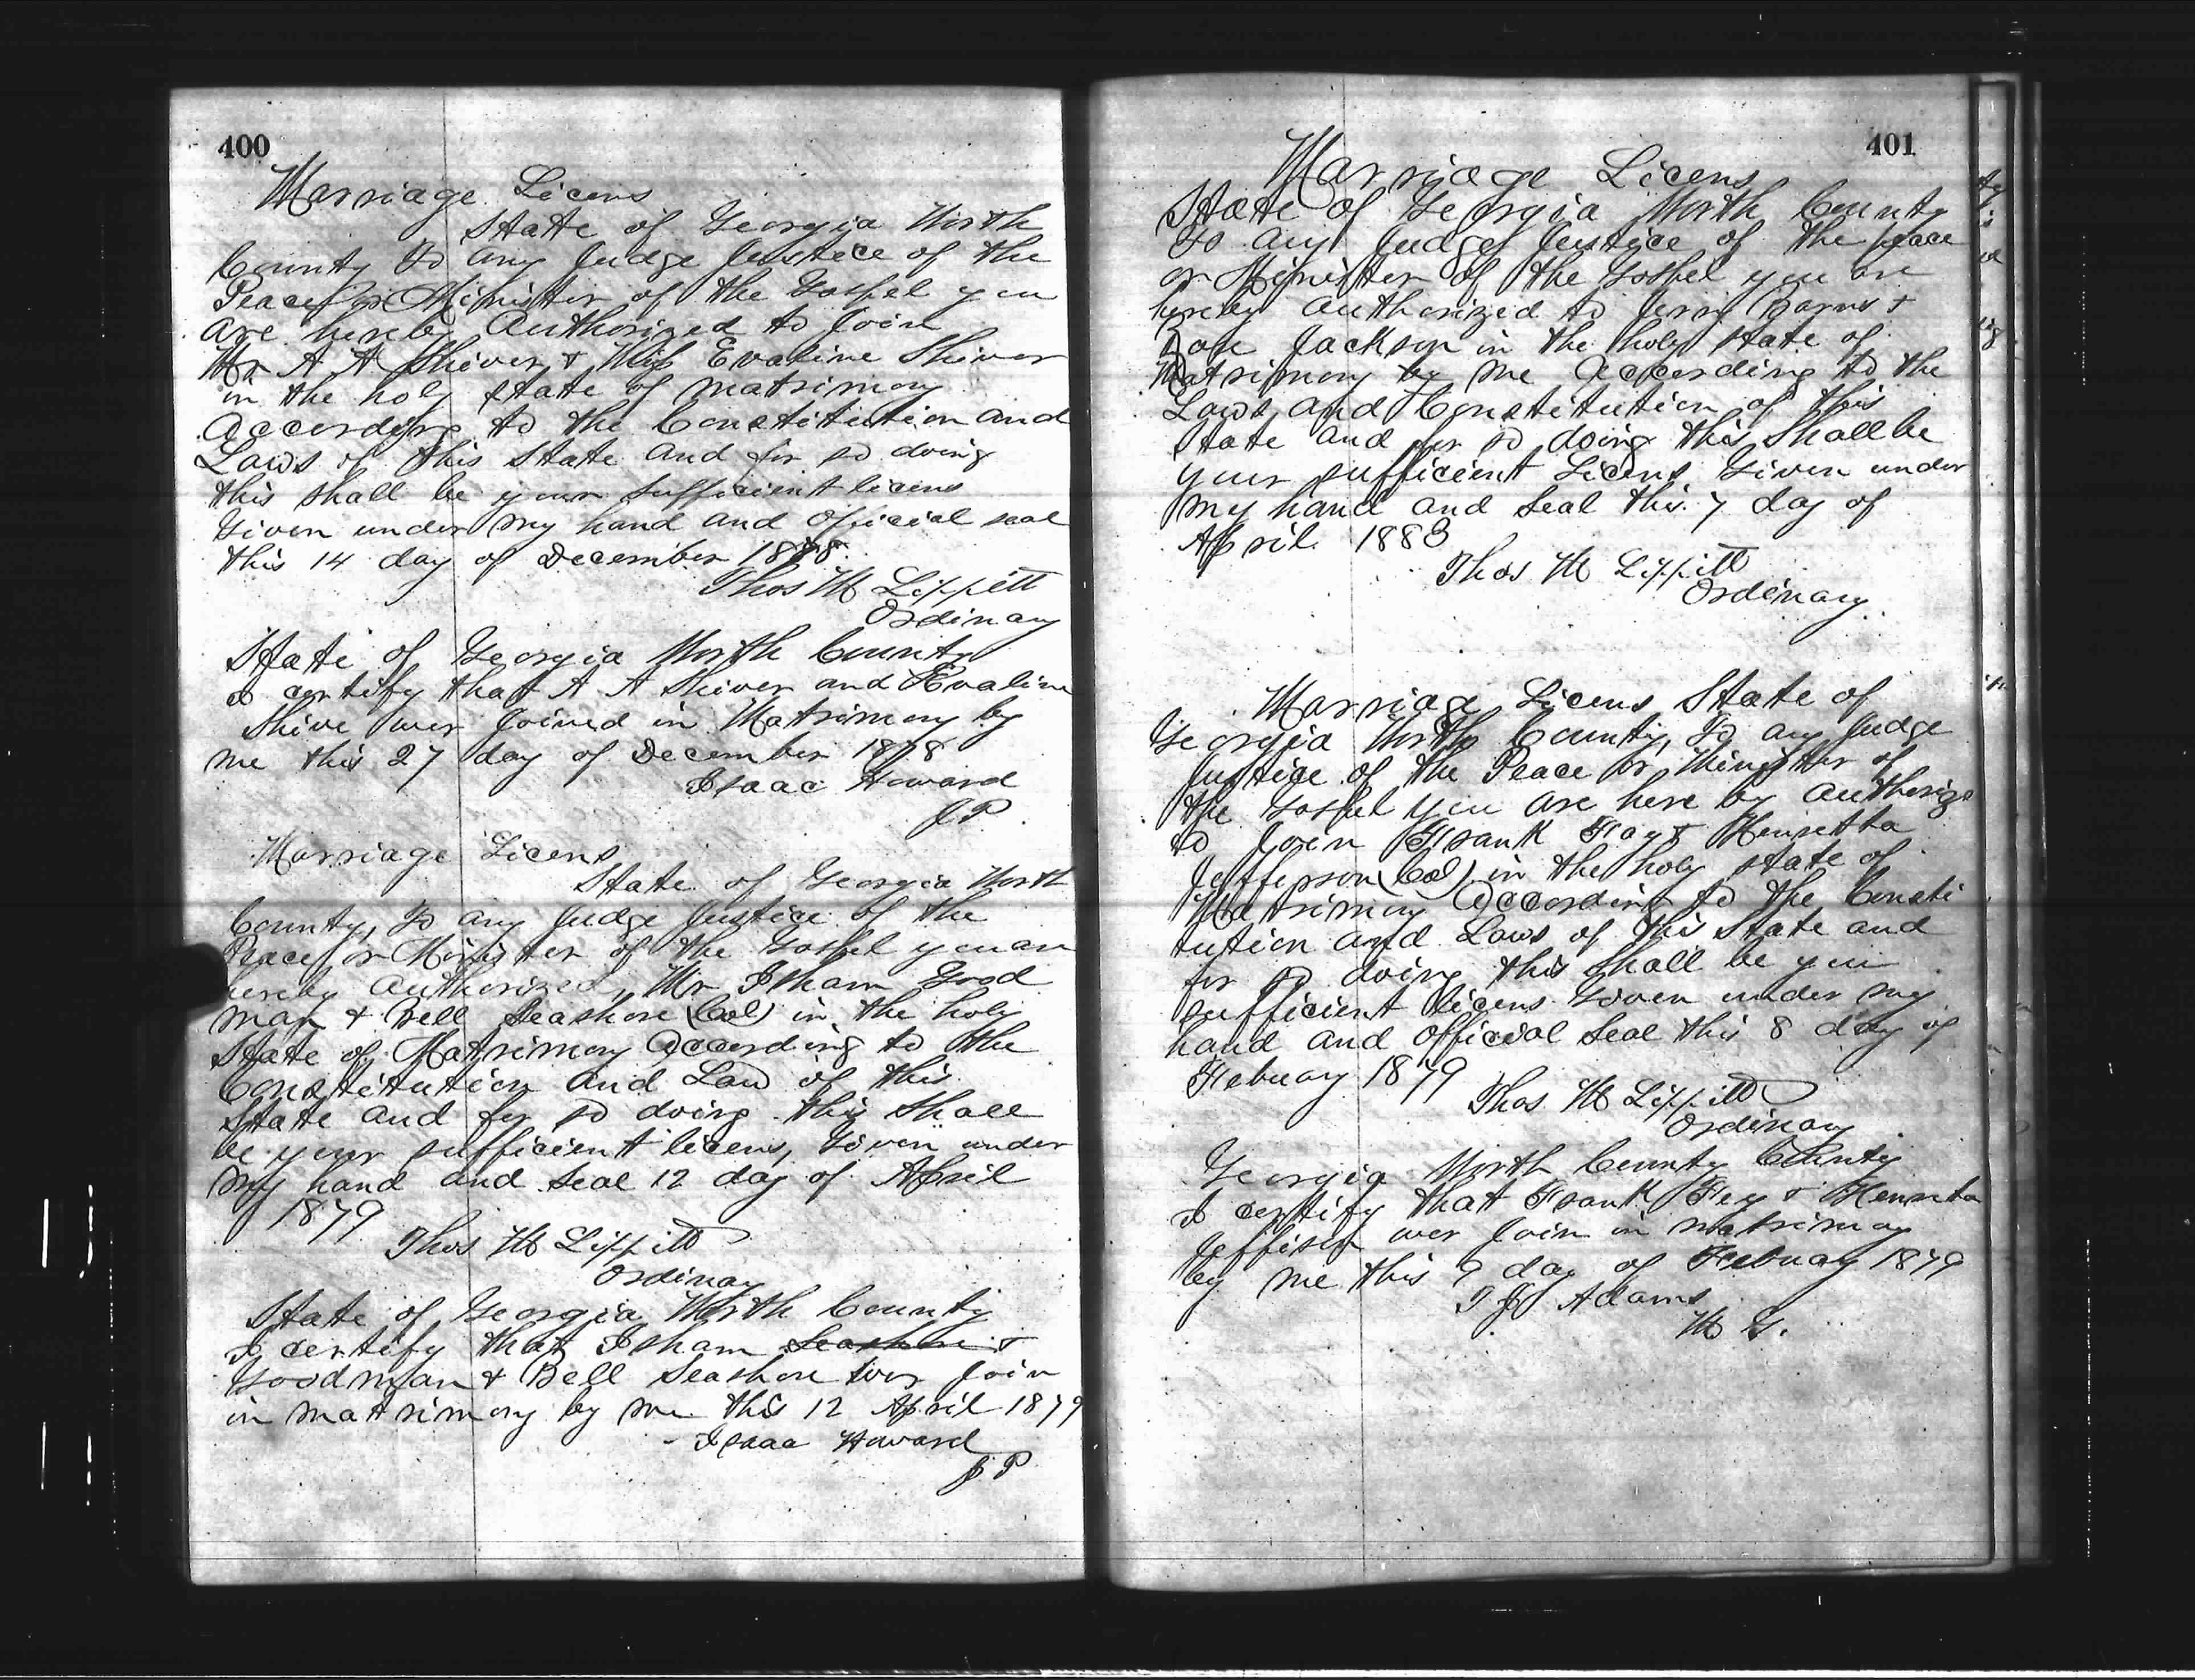 400
Marriage Licens
State of Georgia Worth
County To any Judge Justice of the
Peace or Minister of the Gospel you
are hereby Authorized to Join
Mr A A Shiver & Miss Evaline Shiver
in the holy state of matrimony
According to the Constitution and
Laws of this State and for so doing
this shall be your sufficient licens
Given under my hand and Oficial seal
this 14 day of December 1878
Thos M Lippitt
Ordinary
State of Georgia Worth County
I certify that A A Shiver and Evaline
Shive wer Joined in Matrimony by
me this 27 day of December 1878
Isaac Howard
J P.
Marriage Licens
State of Georgia Worth
County, To any Judge Justice of the
Peace or Minister of the Gospel you are
hereby Authorized, Mr Isham Good
man & Bell Seashore (Col) in the holy
State of Matrimony According to the
Constitution and Law of this
State and for so doing this Shall
be your sufficient licens, Given under
my hand and seal 12 day of April
1879
Thos M Lippitt
Ordinay
State of Georgia Worth County
I certify that Isham Seashore &
Goodman & Bell Seashore wer Join
in matrimony by me this 12 April 1879
Isaac Howard
J P
401
Marriage Licens
State of Georgia Worth County
To any Judge Justice of the peace
or Minister of the Gospel you are
hereby Authorized to Barns &
Jackson in the holy state of
Matrimony by me According to the
Laws and Constitution of this
State and for so doing this Shall be
your sufficient Licens Given under
my hand and Seal this 7 day of
April 1883
Thos M Lippitt
Ordinary.
Marriage Licens State of
Georgia Worth County, To any Judge
Justice of the Peace or Minister of
the Gospel you are here by Authorize
to Join Frank Fay & Henretta
Jefferson (Col) in the holy state of
Matrimony According to the Consti
tution and Laws of this State and
for so doing this Shall be you
sufficient licens Given under my
hand and official Seal this 8 day of
Febuary 1879
Thos M Lippitt
Ordinary
Georgia Worth County County
I certify that Frank Fey & Henreta
Jeffison wer Join in matrimony
by me this 9 day of Febuary 1879
T J Adams
M G.